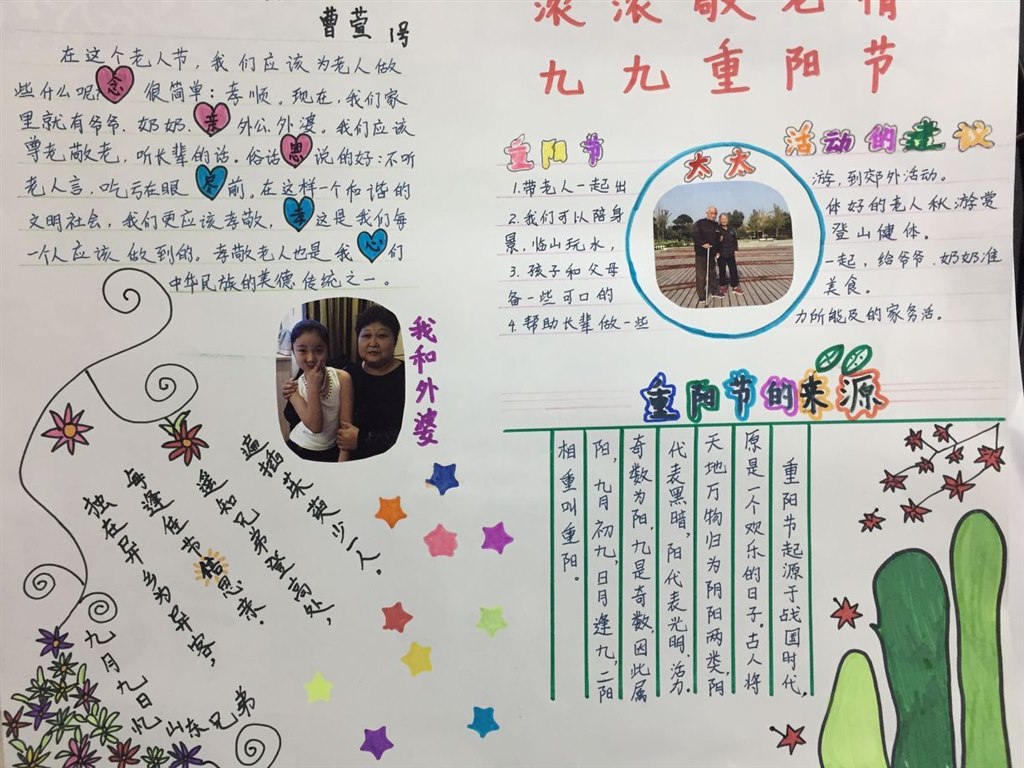 曹萱 1号
在这个老人节,我们应该为老人做
些什么呢?念 很简单:孝顺。现在,我们家
里就有爷爷、奶奶、亲 外公、外婆。我们应该
尊老敬老,听长辈的话。俗话 恩 说的好:不听
老人言,吃亏在眼 前。在这样一个和谐的
文明社会,我们更应该孝敬,孝 这是我们每
一个人应该做到的。孝敬老人也是我 心 们
中华民族的美德传统之一。
我和外婆
滚滚敬老情
九九重阳节
重阳节 活动的建议
太太
1.带老人一起出 游,到郊外活动。
2.我们可以陪身 体好的老人秋游赏
景,临山玩水, 登山健体。
3.孩子和父母 一起,给爷爷、奶奶准
备一些可口的 美食。
4.帮助长辈做一些 力所能及的家务活。
重阳节的来源
重阳节起源于战国时代,
原是一个欢乐的日子。古人将
天地万物归为阴阳两类,阴
代表黑暗,阳代表光明、活力。
奇数为阳,九是奇数,因此属
阳,九月初九,日月逢九,二阳
相重叫重阳。
九月九日忆山东兄弟
独在异乡为异客,
每逢佳节倍思亲。
遥知兄弟登高处,
遍插茱萸少一人。